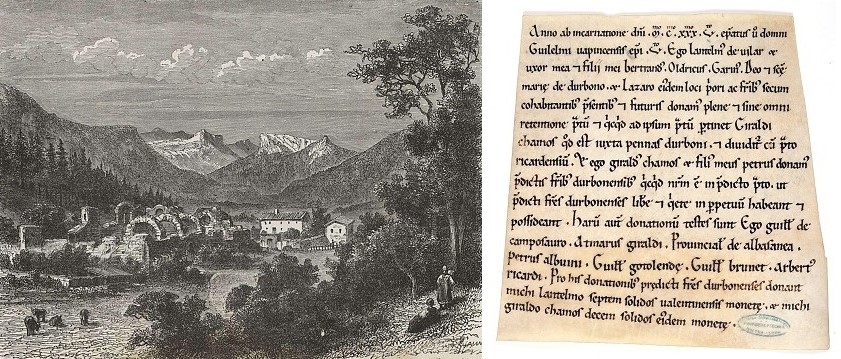 Anno ab incarnatione dñi . Mº. Cº. xxx. Vº. ep̃atus ũ domni
Guilelmi uapincensis ep̃i . Vº. Ego lantelm᾽ de uilar &
uxor mea ⁊ filii mei bertrand᾽. Oldricus . Garin᾽. Deo ⁊ sc̃e
marie de durbono . & Lazaro eidem loci p̃ori ac fr̃ib᾽ secum
cohabitantib᾽ p̃sentib᾽ ⁊ futuris donam᾽ plene ⁊ sine omni
retentione p̃tũ ⁊ q̃cq̃d ad ipsum p̃tũ p̃tinet Giraldi
chamos q̃d est iuxta pennas durboni . ⁊ diuidit᷑ cũ p̃to
ricardensiũ . & ego girald᾽ chamos & fili᾽ meus petrus donam᾽
p̃dictis fr̃ib᾽ durbonensib᾽ q̃cq̃d nr̃m ẽ in p̃dicto p̃to . ut
p̃dicti fr̃es durbonenses libe ⁊ q̃ete in p̃petuũ habeant ⁊
possideant . Harũ aut̃ donationũ testes sunt Ego guill̃ de
camposauro . Aimarus giraldi . Prouincial᾽ de albasanea .
Petrus albuini . Guill̃ gotolende . Guill̃ brunet . Arbert᾽
ricardi . Pro his donationib᾽ predicti fr̃es durbonenses donant
michi lantelmo septem solidos ualentinensis monete . & michi
giraldo chamos decem solidos eidem monete .